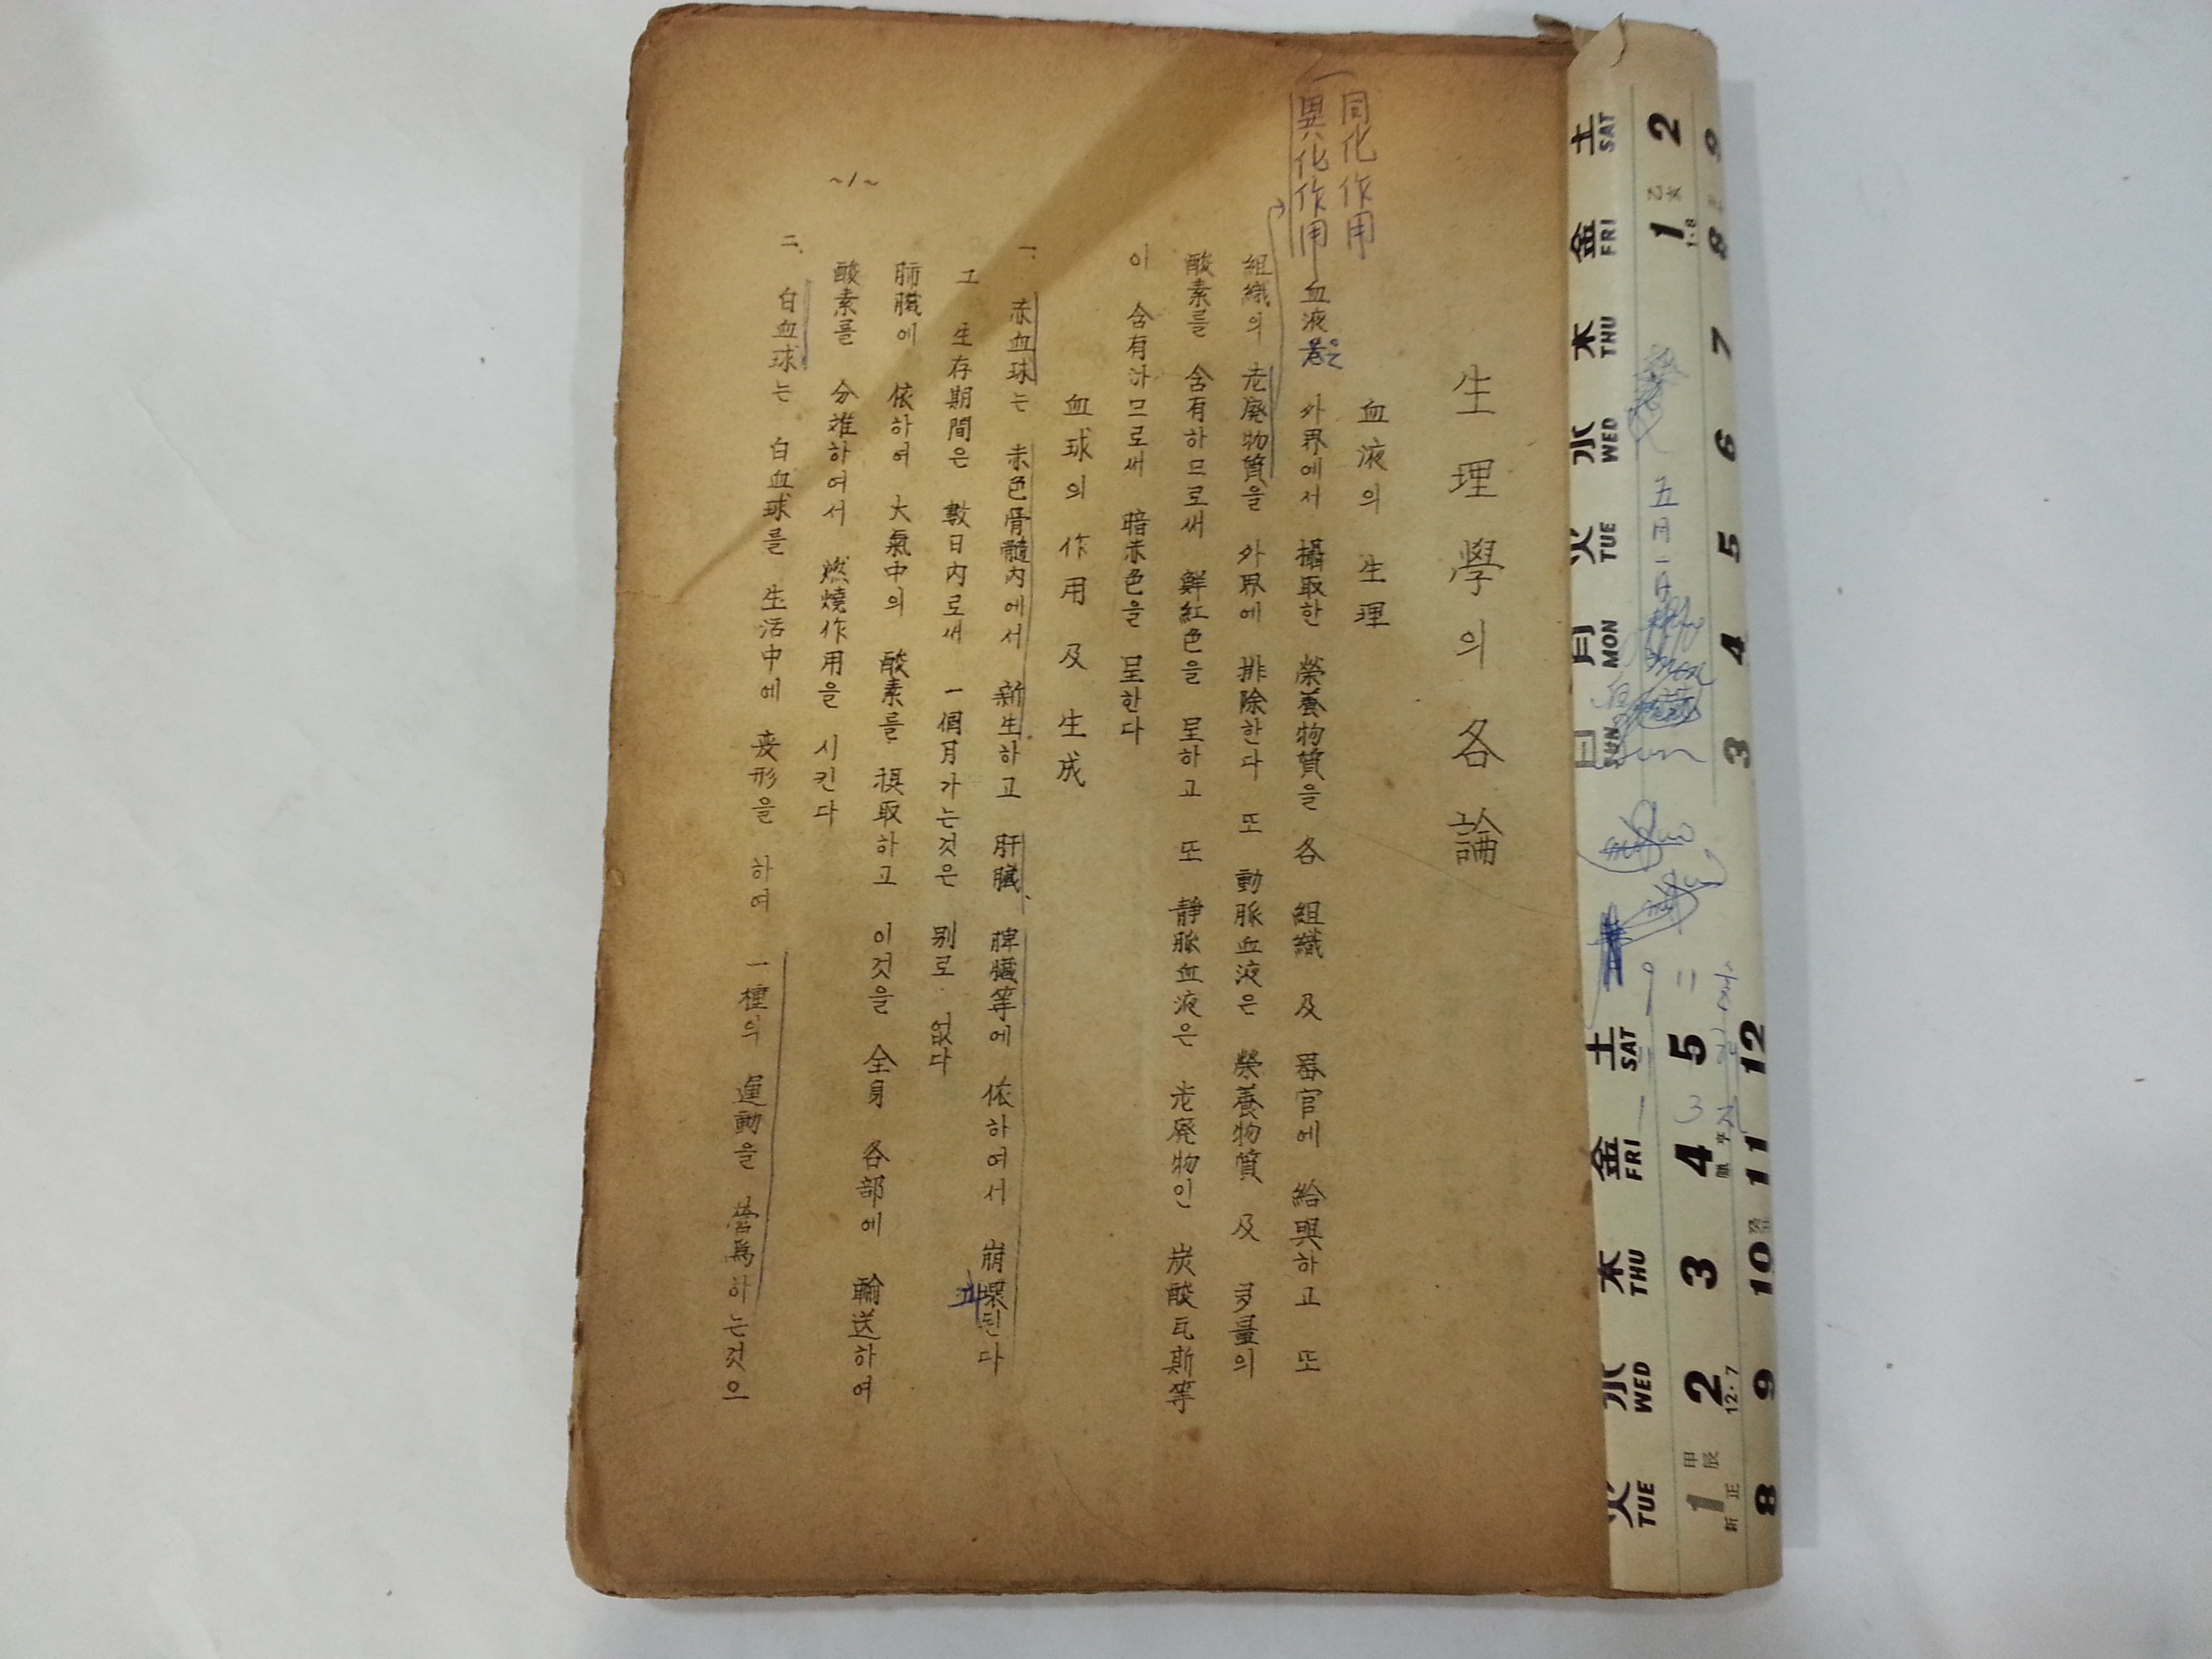 同化作用
異化作用
生理學의 各論
血液의 生理
血液은 外界에서 攝取한 榮養物質을 各 組織 及 器官에 給與하고 또
組織의 老廢物質을 外界에 排除한다 또 動脈血液은 榮養物質 及 多量의
酸素를 含有하므로써 鮮紅色을 呈하고 또 靜脈血液은 老廢物인 炭酸瓦斯等
이 含有하므로써 暗赤色을 呈한다
血球의 作用 及 生成
一. 赤血球는 赤色骨髓內에서 新生하고 肝臟、脾臟等에 依하여서 崩壞된다
그 生存期間은 數日內로써 一個月가는것은 別로 없다
肺臟에 依하여 大氣中의 酸素를 摂取하고 이것을 全身 各部에 輸送하여
酸素를 分離하여서 燃燒作用을 시킨다
二. 白血球는 白血球를 生活中에 変形을 하여 一種의 運動을 營爲하는것으
~1~
土 SAT 2 9
金 FRI 1 1·8 8
木 THU 7
水 WED 6
火 TUE 5
月 MON 4
日 SUN 3
五月一日
mon
sun
9 11
1 3
土 SAT 5 12
金 FRI 4 11
木 THU 3 10
水 WED 2 12·7 9
火 TUE 1 新正 8
甲辰
乙亥